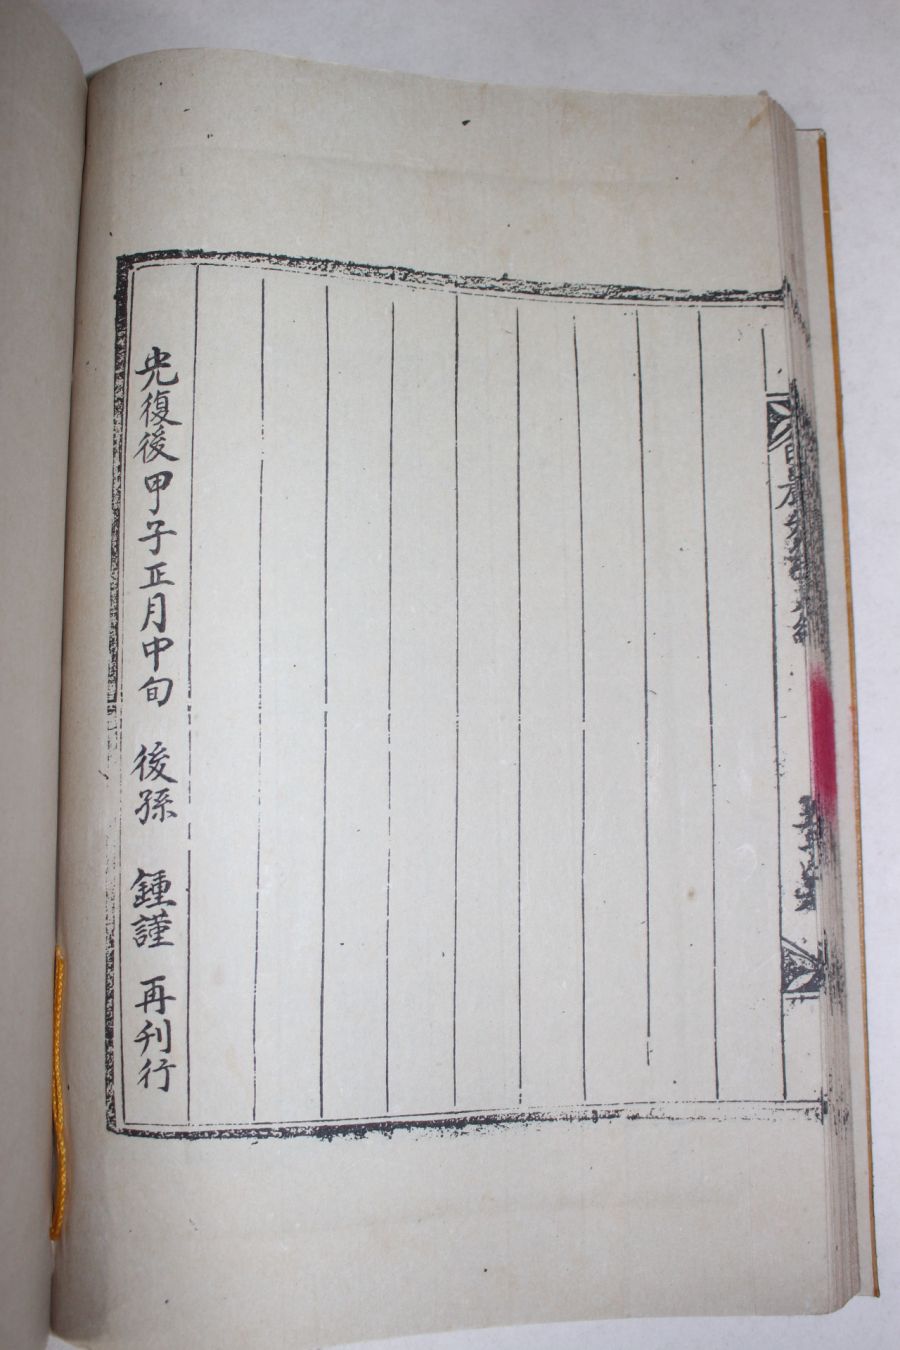 光復後甲子正月中旬 後孫 鍾謹 再刊行